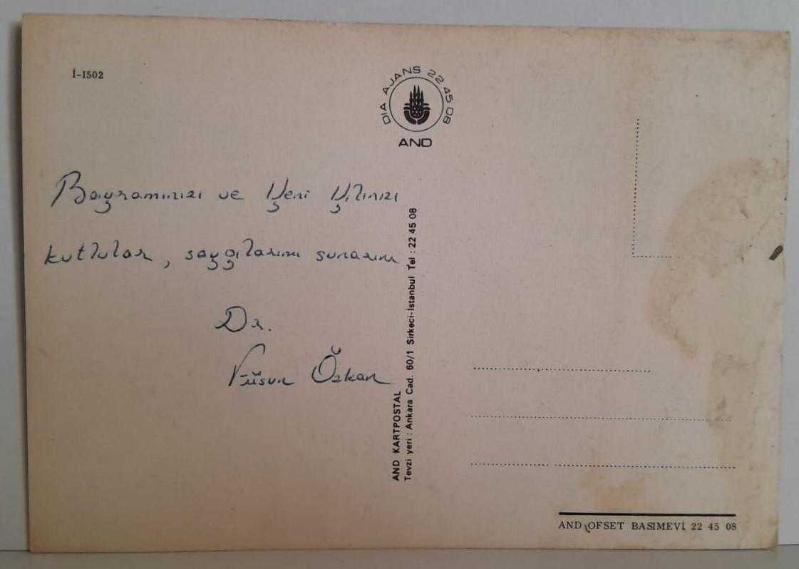 İ-1502
DIA AJANS 22 45 08
AND
Bayramınızı ve Yeni Yılınızı
kutlular, saygılarımı sunarım
Dr.
Füsun Özkan
AND KARTPOSTAL
Tevzi yeri : Ankara Cad. 60/1 Sirkeci-İstanbul Tel : 22 45 08
AND OFSET BASIMEVİ 22 45 08